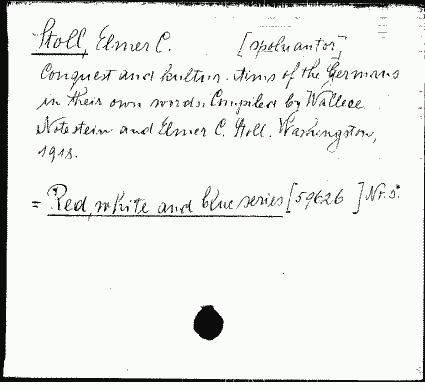 Stoll, Elmer C. [spoluautor]
Conquest and kultur. Aims of the Germans
in their own words. Compiled by Wallace
Notestein and Elmer C. Stoll. Washington,
1918.
= Red, white and blue series [59626 ] Nr. 5.